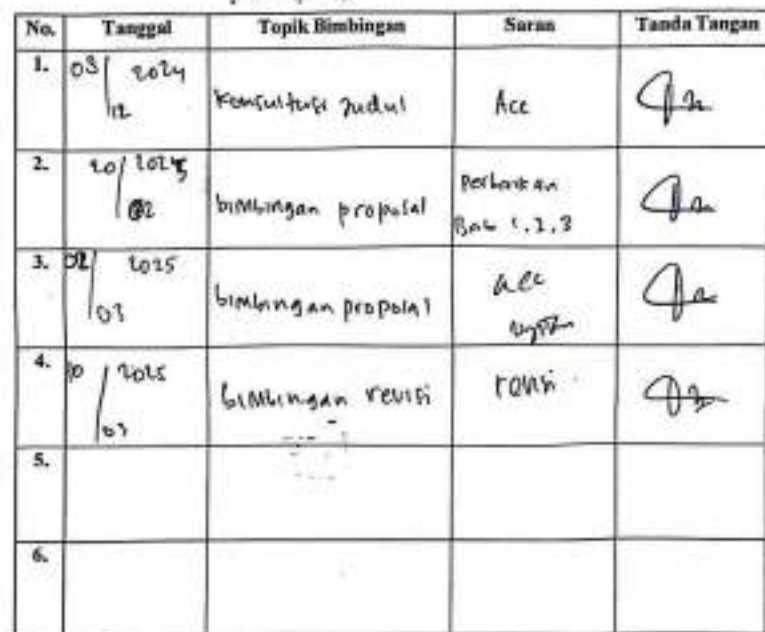 No. Tanggal Topik Bimbingan Saran Tanda Tangan
1. 03/12 2024 Konsultasi Judul Acc
2. 20/02 2025 bimbingan proposal perbaikan Bab 1.2.3
3. 02/03 2025 bimbingan proposal acc
4. 10/03 2025 bimbingan revisi revisi
5.
6.